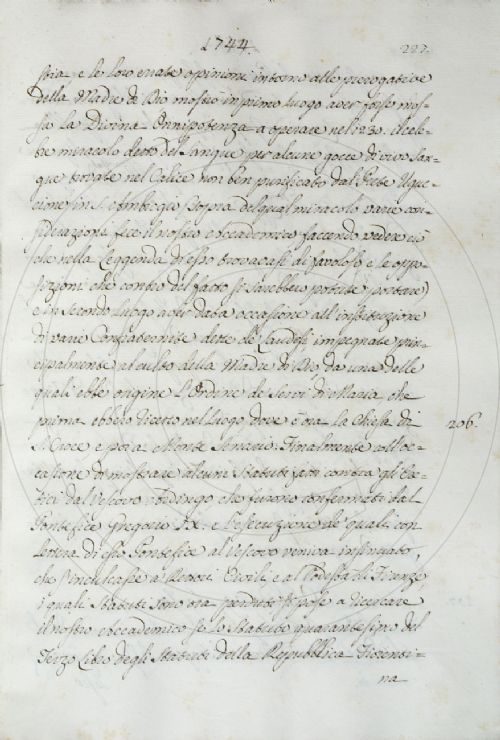 1744.
227.
stia, e le loro errate opinioni intorno alle prerogative
della Madre di Dio mostrò in primo luogo aver forse mos-
sa la Divina Onnipotenza a operare nel 1230. il cele-
bre miracolo detto del Sangue per alcune gocce di vivo San-
gue trovate nel Calice non ben purificato dal Prete Uguc-
cione in S. Ambrogio. Sopra del qual miracolo varie con-
siderazioni fece il nostro Accademico facendo vedere ciò
che nella Leggenda di esso trovavasi di favoloso, e le oppo-
sizioni che contro del fatto si sarebbero potute portare;
e in secondo luogo aver data occasione all' instituzione
di varie Confraternite dette de' Laudesi impegnate prin-
cipalmente al culto della Madre di Dio da una delle
quali ebbe origine l'Ordine de Servi di Maria che
prima ebbero ricetto nel luogo dove è ora la Chiesa di
206.
S. Croce e poi a Monte Senario. Finalmente coll' oc-
casione di mostrare alcuni Statuti fatti contra gli Ere-
tici dal Vescovo Ardingo che furono confermati dal
Pontefice Gregorio IX. e l'esecuzione de' quali con
lettera di esso Pontefice al Vescovo veniva
che l'inculcasse a Rettori Civili, e al Podestà di Firenze
i quali Statuti sono ora perduti si pose a ricercare
il nostro Accademico se lo Statuto quarantesimo del
Terzo Libro degli Statuti della Repubblica Fiorenti-
na